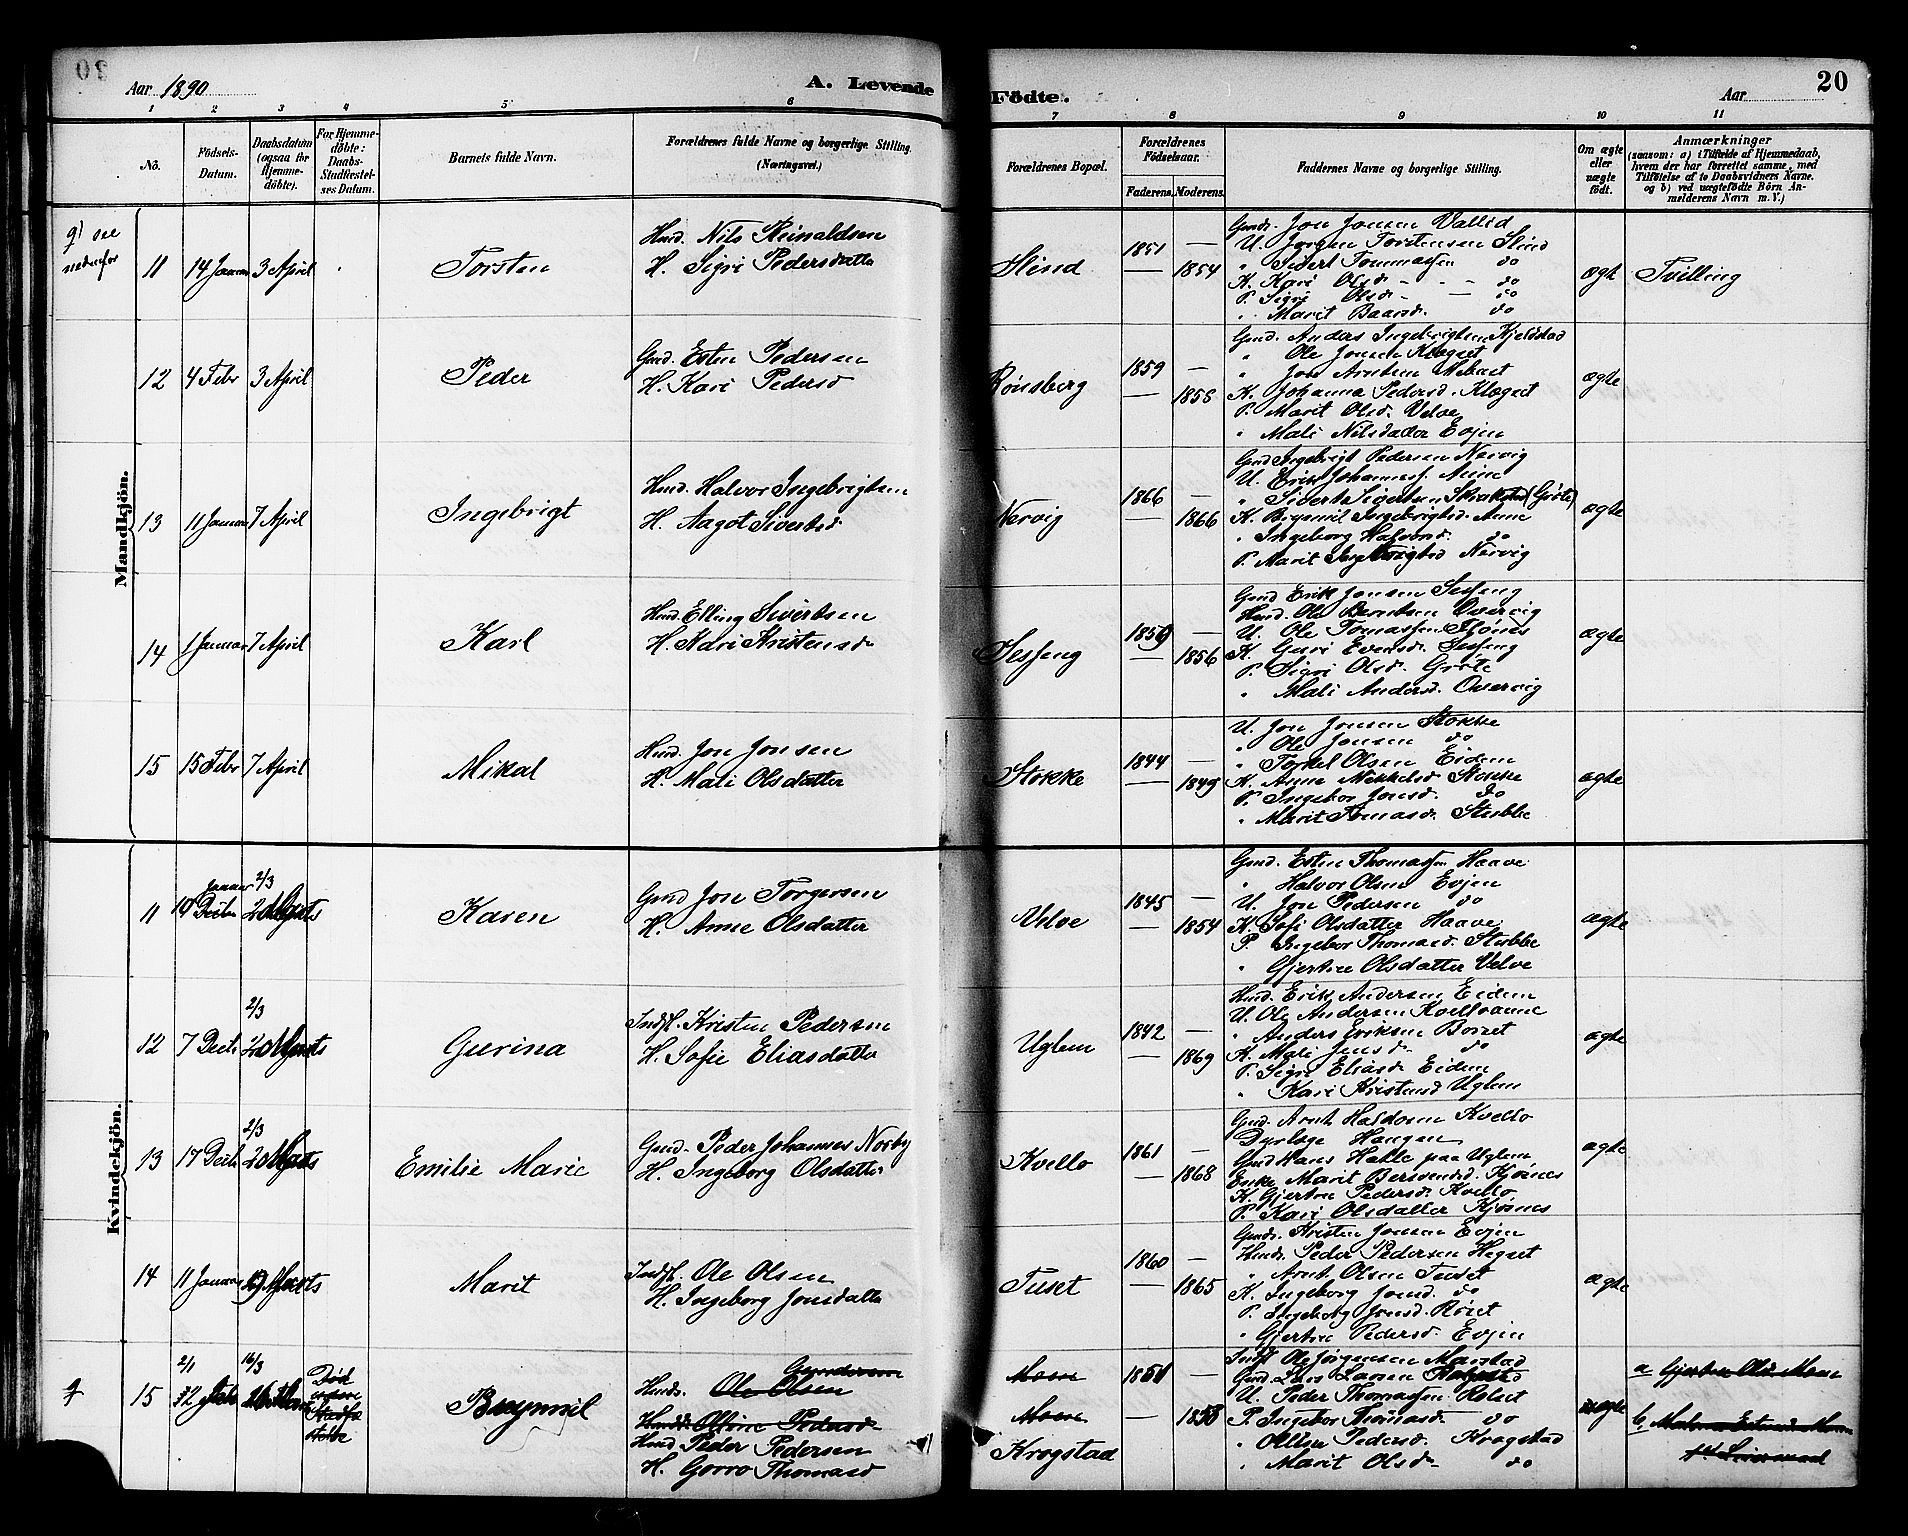 Aar 1890
A. Levende Födte.
Aar
20
1 2 3 4 5 6 7 8 9 10 11
Nö.
Födsels-Datum.
Daabsdatum (ogsaa for Hjemme-döbte).
For Hjemme-döbte: Daabs-Stadfæstel-ses Datum.
Barnets fulde Navn.
Forældrenes fulde Navne og borgerlige Stilling. (Næringsvei.)
Forældrenes Bopæl.
Forældrenes Födselsaar.
Faderens. Moderens.
Faddernes Navne og borgerlige Stilling.
Om ægte eller uægte födt.
Anmærkninger
(saasom: a) i Tilfælde af Hjemmedaab, hvem der har forrettet samme, med Tilföielse af to Daabsvidners Navne. og b) ved uægtefödte Börn An-melderens Navn m. V.)
Mandkjön.
g) see nedenfor
11 14 Januar 3 April Torsten
Hmd. Nils Reinaldsen
H. Sigri Pedersdatter
Slind 1851 — 1854
Gmdr. Jon Jonsen Vallid
U. Jørgen Torstensen Slind
" Sivert Tommassen do
K. Kari Olsd. do
P. Sigri Olsd. do
" Marit Baarsd. do
ægte Tvilling
12 4 Febr 3 April Peder
Gmd. Esten Pedersen
H. Kari Pedersd
Rønsberg 1859 — 1858
Gmd. Anders Ingebrigtsen Kjeldstad
" Ole Jonsen Klæget
" Jon Arntsen
K. Johanna Pedersd. Klæget
P. Marit Olsd. Velve
" Mali Nilsdatter Evjen
ægte
13 11 Januar 7 April Ingebrigt
Hmd. Halvor Ingebrigtsen
H. Aagot Sivertsd
Nervig 1866 — 1866
Gmd Ingebrigt Pedersen Nervig
U. Erik Johannes. Aune
" Sivert Sivertsen (Grøte)
K. Brynnil Ingebrigtsd. Aune
" Ingeborg Halvorsd. do
P. Marit Ingebrigtsd Nervig
ægte
14 1 Januar 7 April Karl
Hmd. Elling Sivertsen
H. Kari Kristensd
Sesseng 1859 — 1856
Gmd Erik Jonsen Sesseng
Hmd. Ole Berntsen Overvig
U. Ole Tomassen Kjønes
K. Guri Evensd. Sesseng
P. Sigri Olsd. Grøte
" Mali Andersd. Overvig
ægte
15 15 Febr 7 April Mikal
Hmd. Jon Jonsen
H. Mali Olsdatter
Stokke 1844 — 1849
U. Jon Jonsen Stokke
" Ole Jonsen do
" Torkel Olsen Eidem
K. Anne Mikkelsd Stokke
P. Ingebor Jonsd. do
" Marit Tomasd. Stubbe
ægte
Kvindekjön.
11 19 Decbr Januar 2/3 Marts Karen
Gmd Jon Torgersen
H. Anne Olsdatter
Velve 1845 — 1854
Gmd. Esten Thomassen Haave
" Halvor Olsen Evjen
U. Jon Pedersen do
K. Sofi Olsdatter Haave
P. Ingebor Thomasd. Stubbe
" Gjertru Olsdatter Velve
ægte
12 7 Decbr 2/3 Marts Gurina
Indfl. Kristen Pedersen
H. Sofie Eliasdatter
Uglem 1842 — 1869
Hmd. Erik Andersen Eidem
U. Ole Andersen Kvelloaune
" Anders Eriksen Borset
K. Mali Jensd. do
P. Sigri Eliasd Eidem
" Kari Kristensd Uglem
ægte
13 17 Decbr 2/3 Marts Emilie Marie
Gmd. Peder Johansen Norby
H. Ingeborg Olsdatter
Kvello 1861 — 1868
Gmd. Arnt Haldosen Kvello
Dyrlæge Haugen
Gmd Hans Halle paa Uglem
Enke Marit Bersvendsd. Kjøsnes
K. Gjertru Pedersd. Kvello
P. Kari Olsdatter Kjøsnes
ægte
14 11 Januar Marts Marit
Indfl. Ole Olsen
H. Ingeborg Jonsdatter
Tuset 1860 — 1865
Gmdr. Kristen Jonsen Evjen
Hmdr. Peder Pedersen Hegset
" Arnt Olsen Tuset
K. Ingeborg Jonsd. do
P. Ingeborg Jonsd. Røset
" Gjertru Pedersd. Evjen
ægte
15 2/1 12 Febr 16/3 Brynnil
Hmdr. Ole Olsen
Hmd. Peder Pedersen
H. Gorro Thomasd
Moen
Moen
Krogstad 1851 — 1853
Indfl Ole Jørgensen Marstad
Gmd. Lars Larsen
U. Peder Thomassen Rolset
P. Ingebor Thomasd. do
" Pedersd. Krogstad
" Marit Olsd. do
ægte
a Gjertru Olsd. Moen